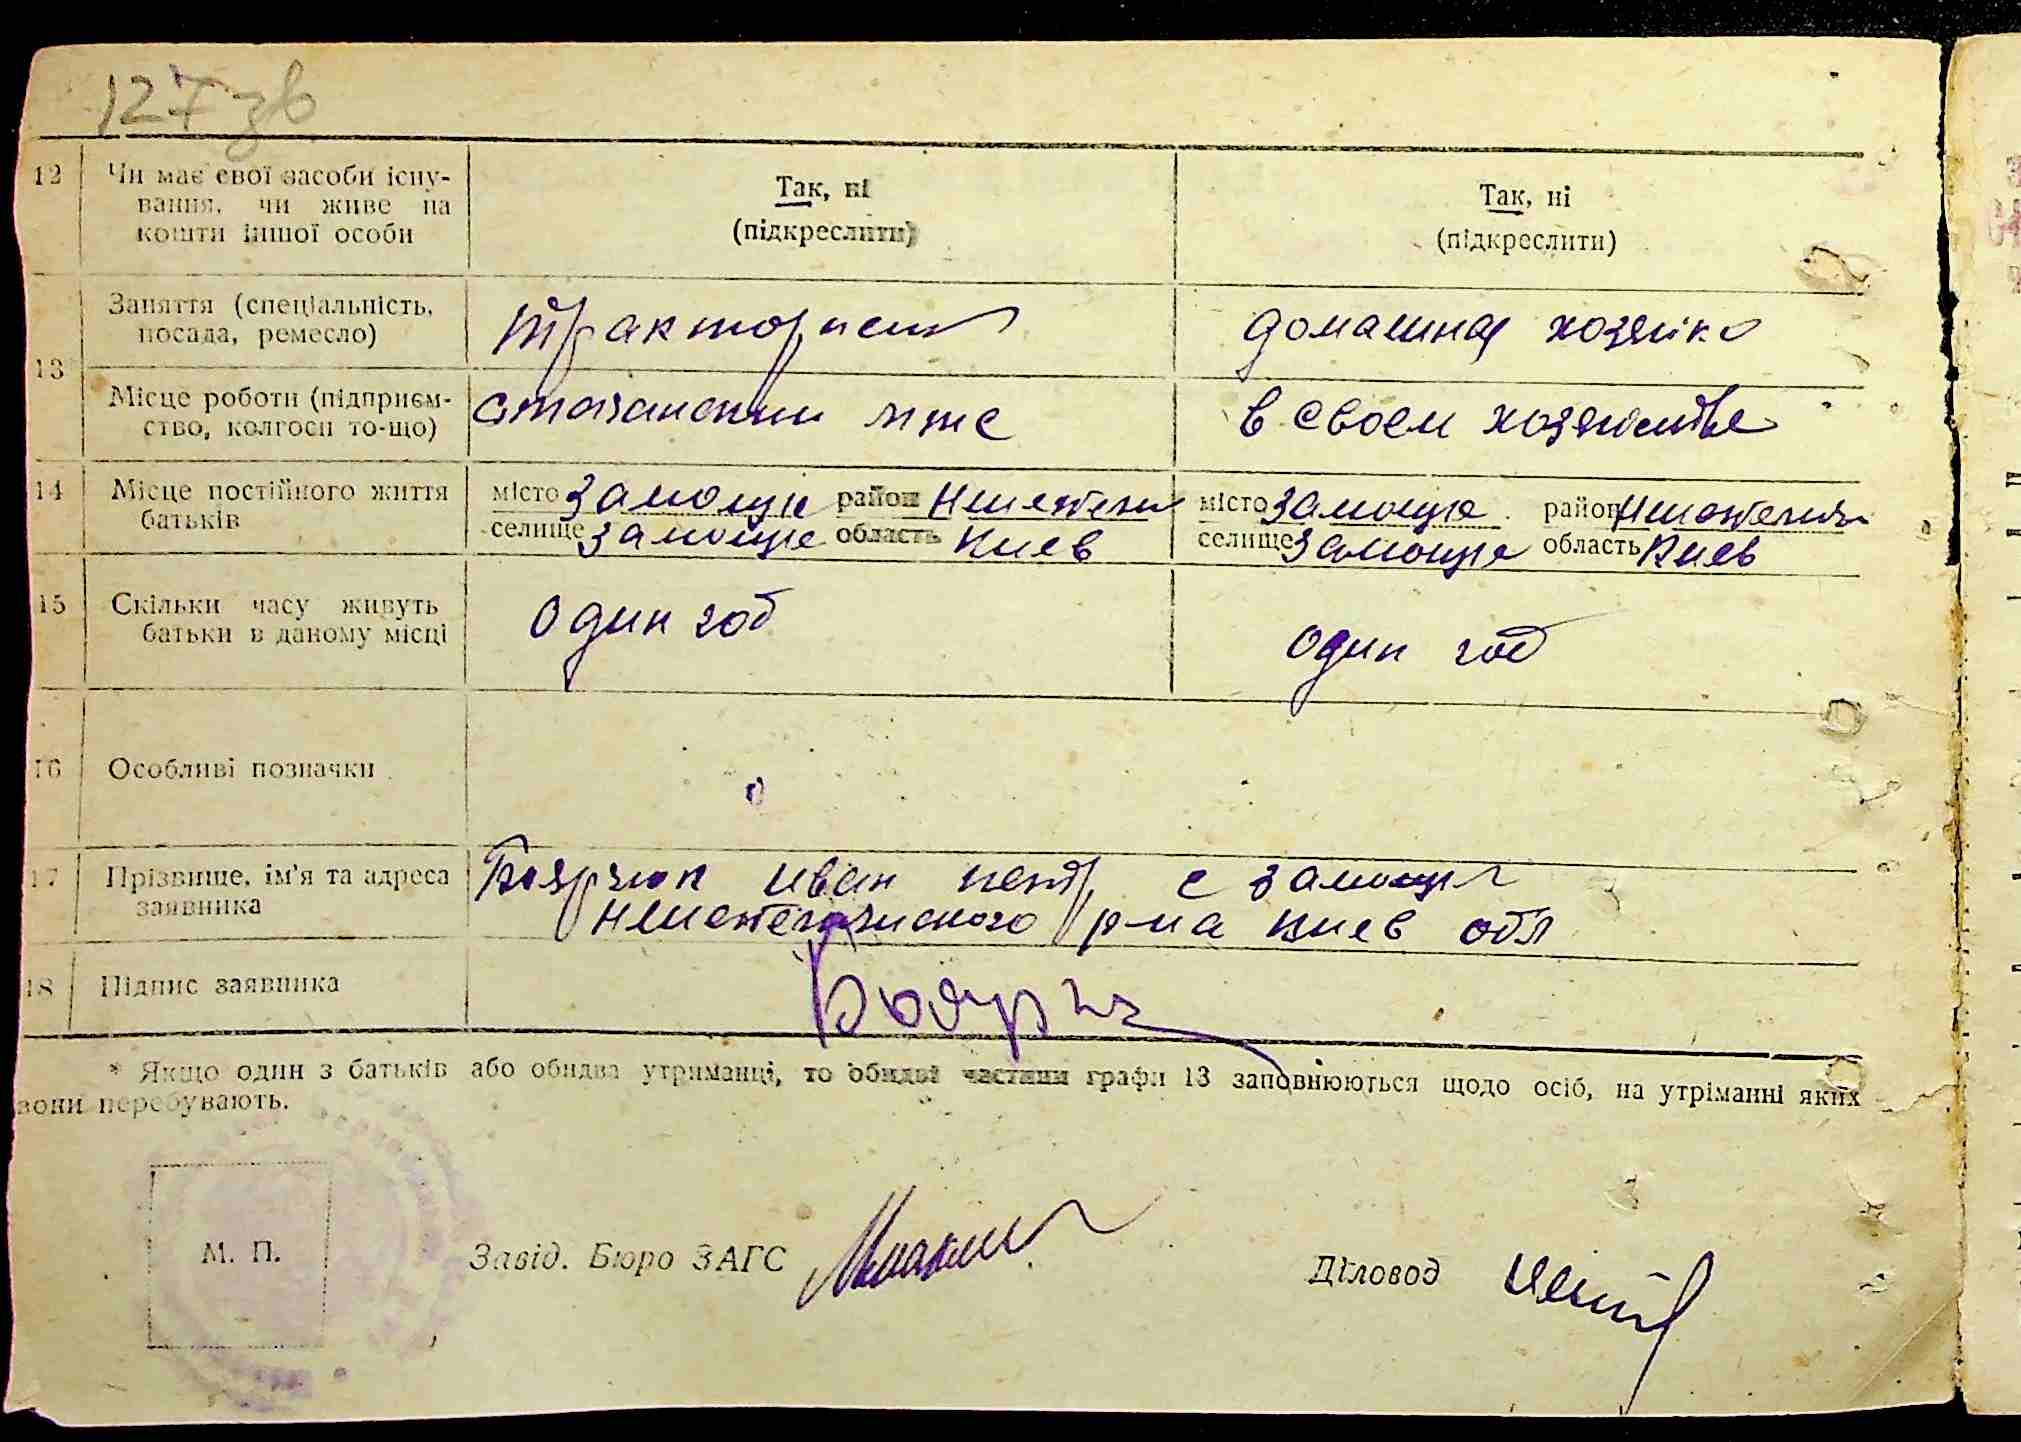 127 зв
12 Чи має свої засоби існу-
вання, чи живе на
кошти іншої особи
Так, ні
(підкреслити)
Так, ні
(підкреслити)
13
Заняття (спеціальність,
посада, ремесло)
тракторист
домашняя хозяйка
Місце роботи (підприєм-
ство, колгосп то-що)
мтс
в своем хозяйстве
14 Місце постійного життя
батьків
місто Замощье район
селище Замощье область Киев
місто Замощье район
селище Замощье область Киев
15 Скільки часу живуть
батьки в даному місці
один год
один год
16 Особливі позначки
17 Прізвище, ім'я та адреса
заявника
Боярчюк иван петр с замощье
р-на киев обл
18 Підпис заявника
* Якщо один з батьків або обидва утриманці, то обидві частини графи 13 заповнюються щодо осіб, на утріманні яких
вони перебувають.
М. П.
Завід. Бюро ЗАГС
Діловод